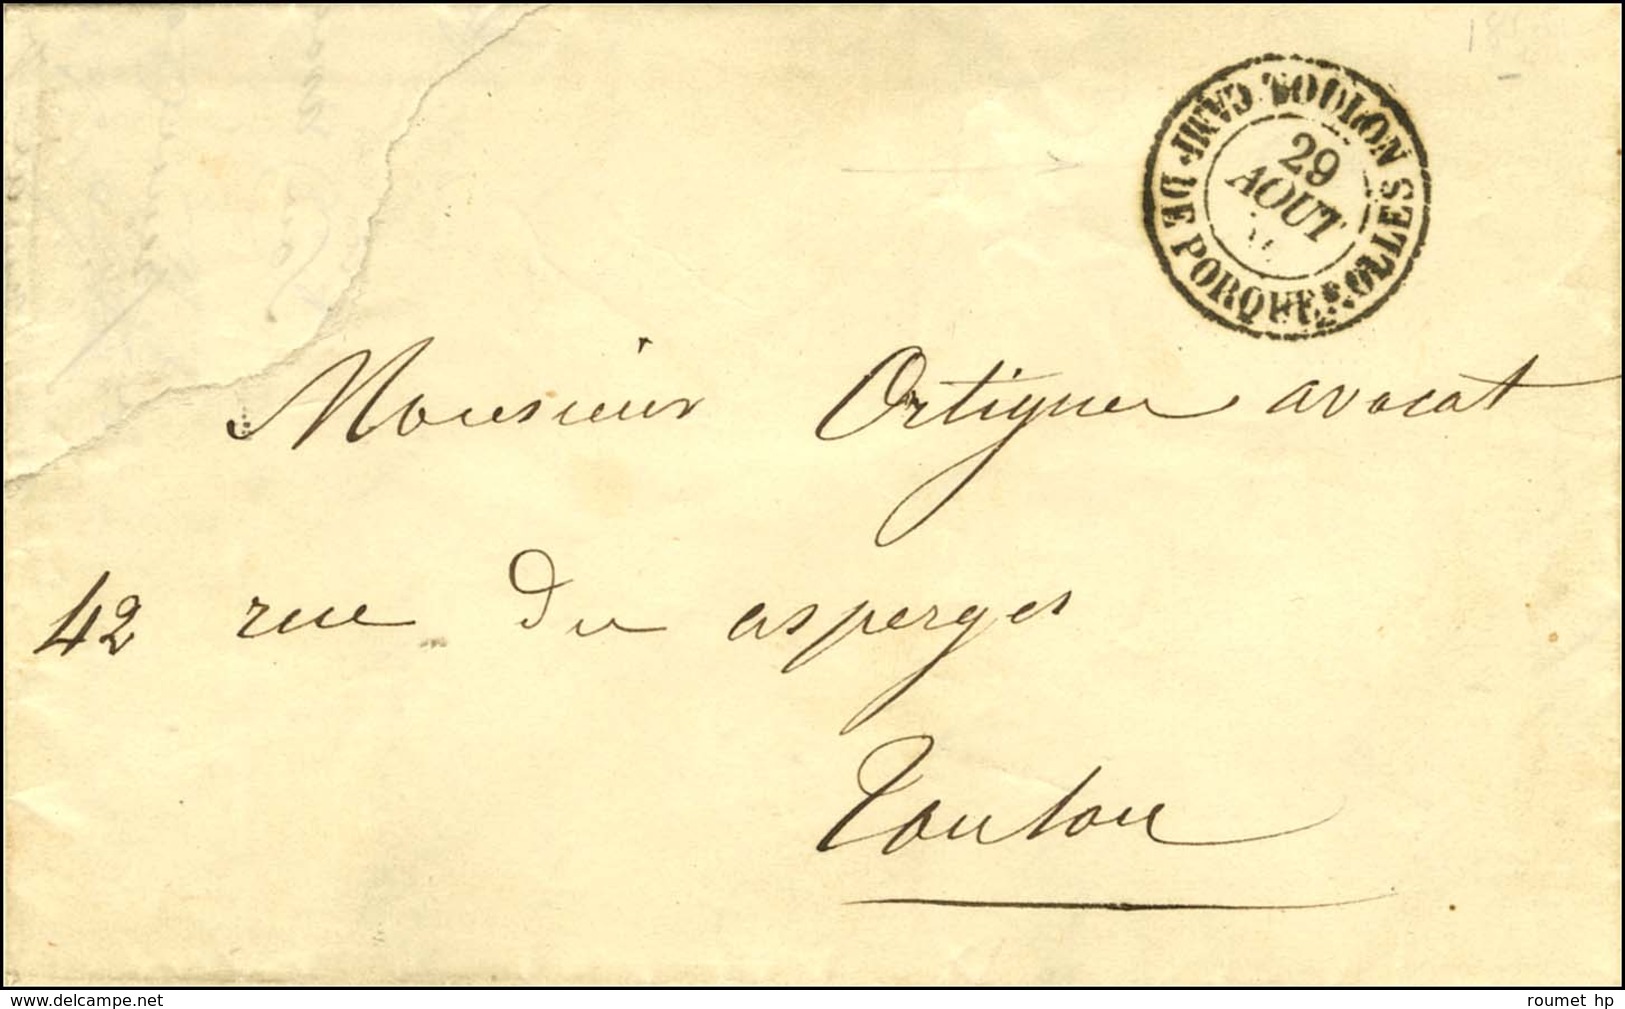 TOULON CAMP DE PORQUEROLLES
29
AOUT
Monsieur Ortigue avocat
42 rue du asperges
Toulon
delcampe.net
roumet hp